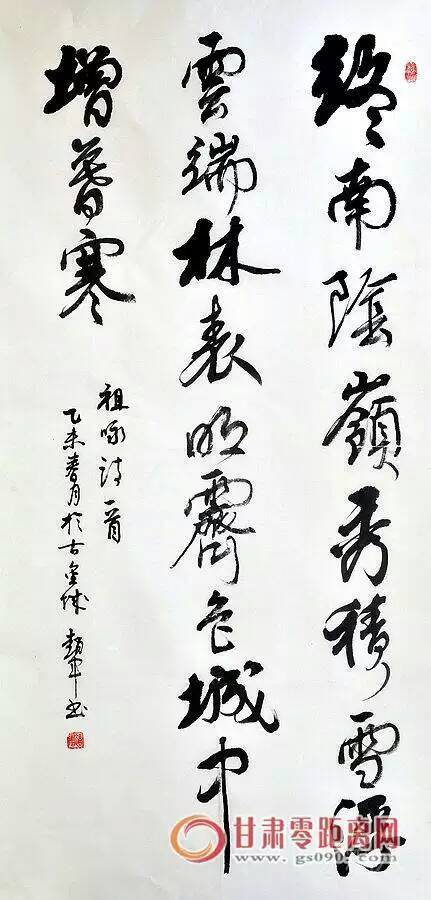 終南陰嶺秀積雪浮
雲端林表明霽色城中
增暮寒
祖咏詩一首
乙未春月於古金城 书
甘肃零距离网